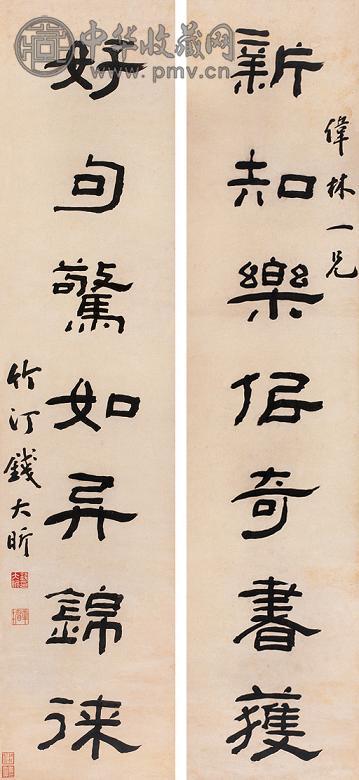 中华收藏网
www.pmv.cn
偉林一兄
新知樂佀奇書獲
好句驚如异錦徕
竹汀錢大昕